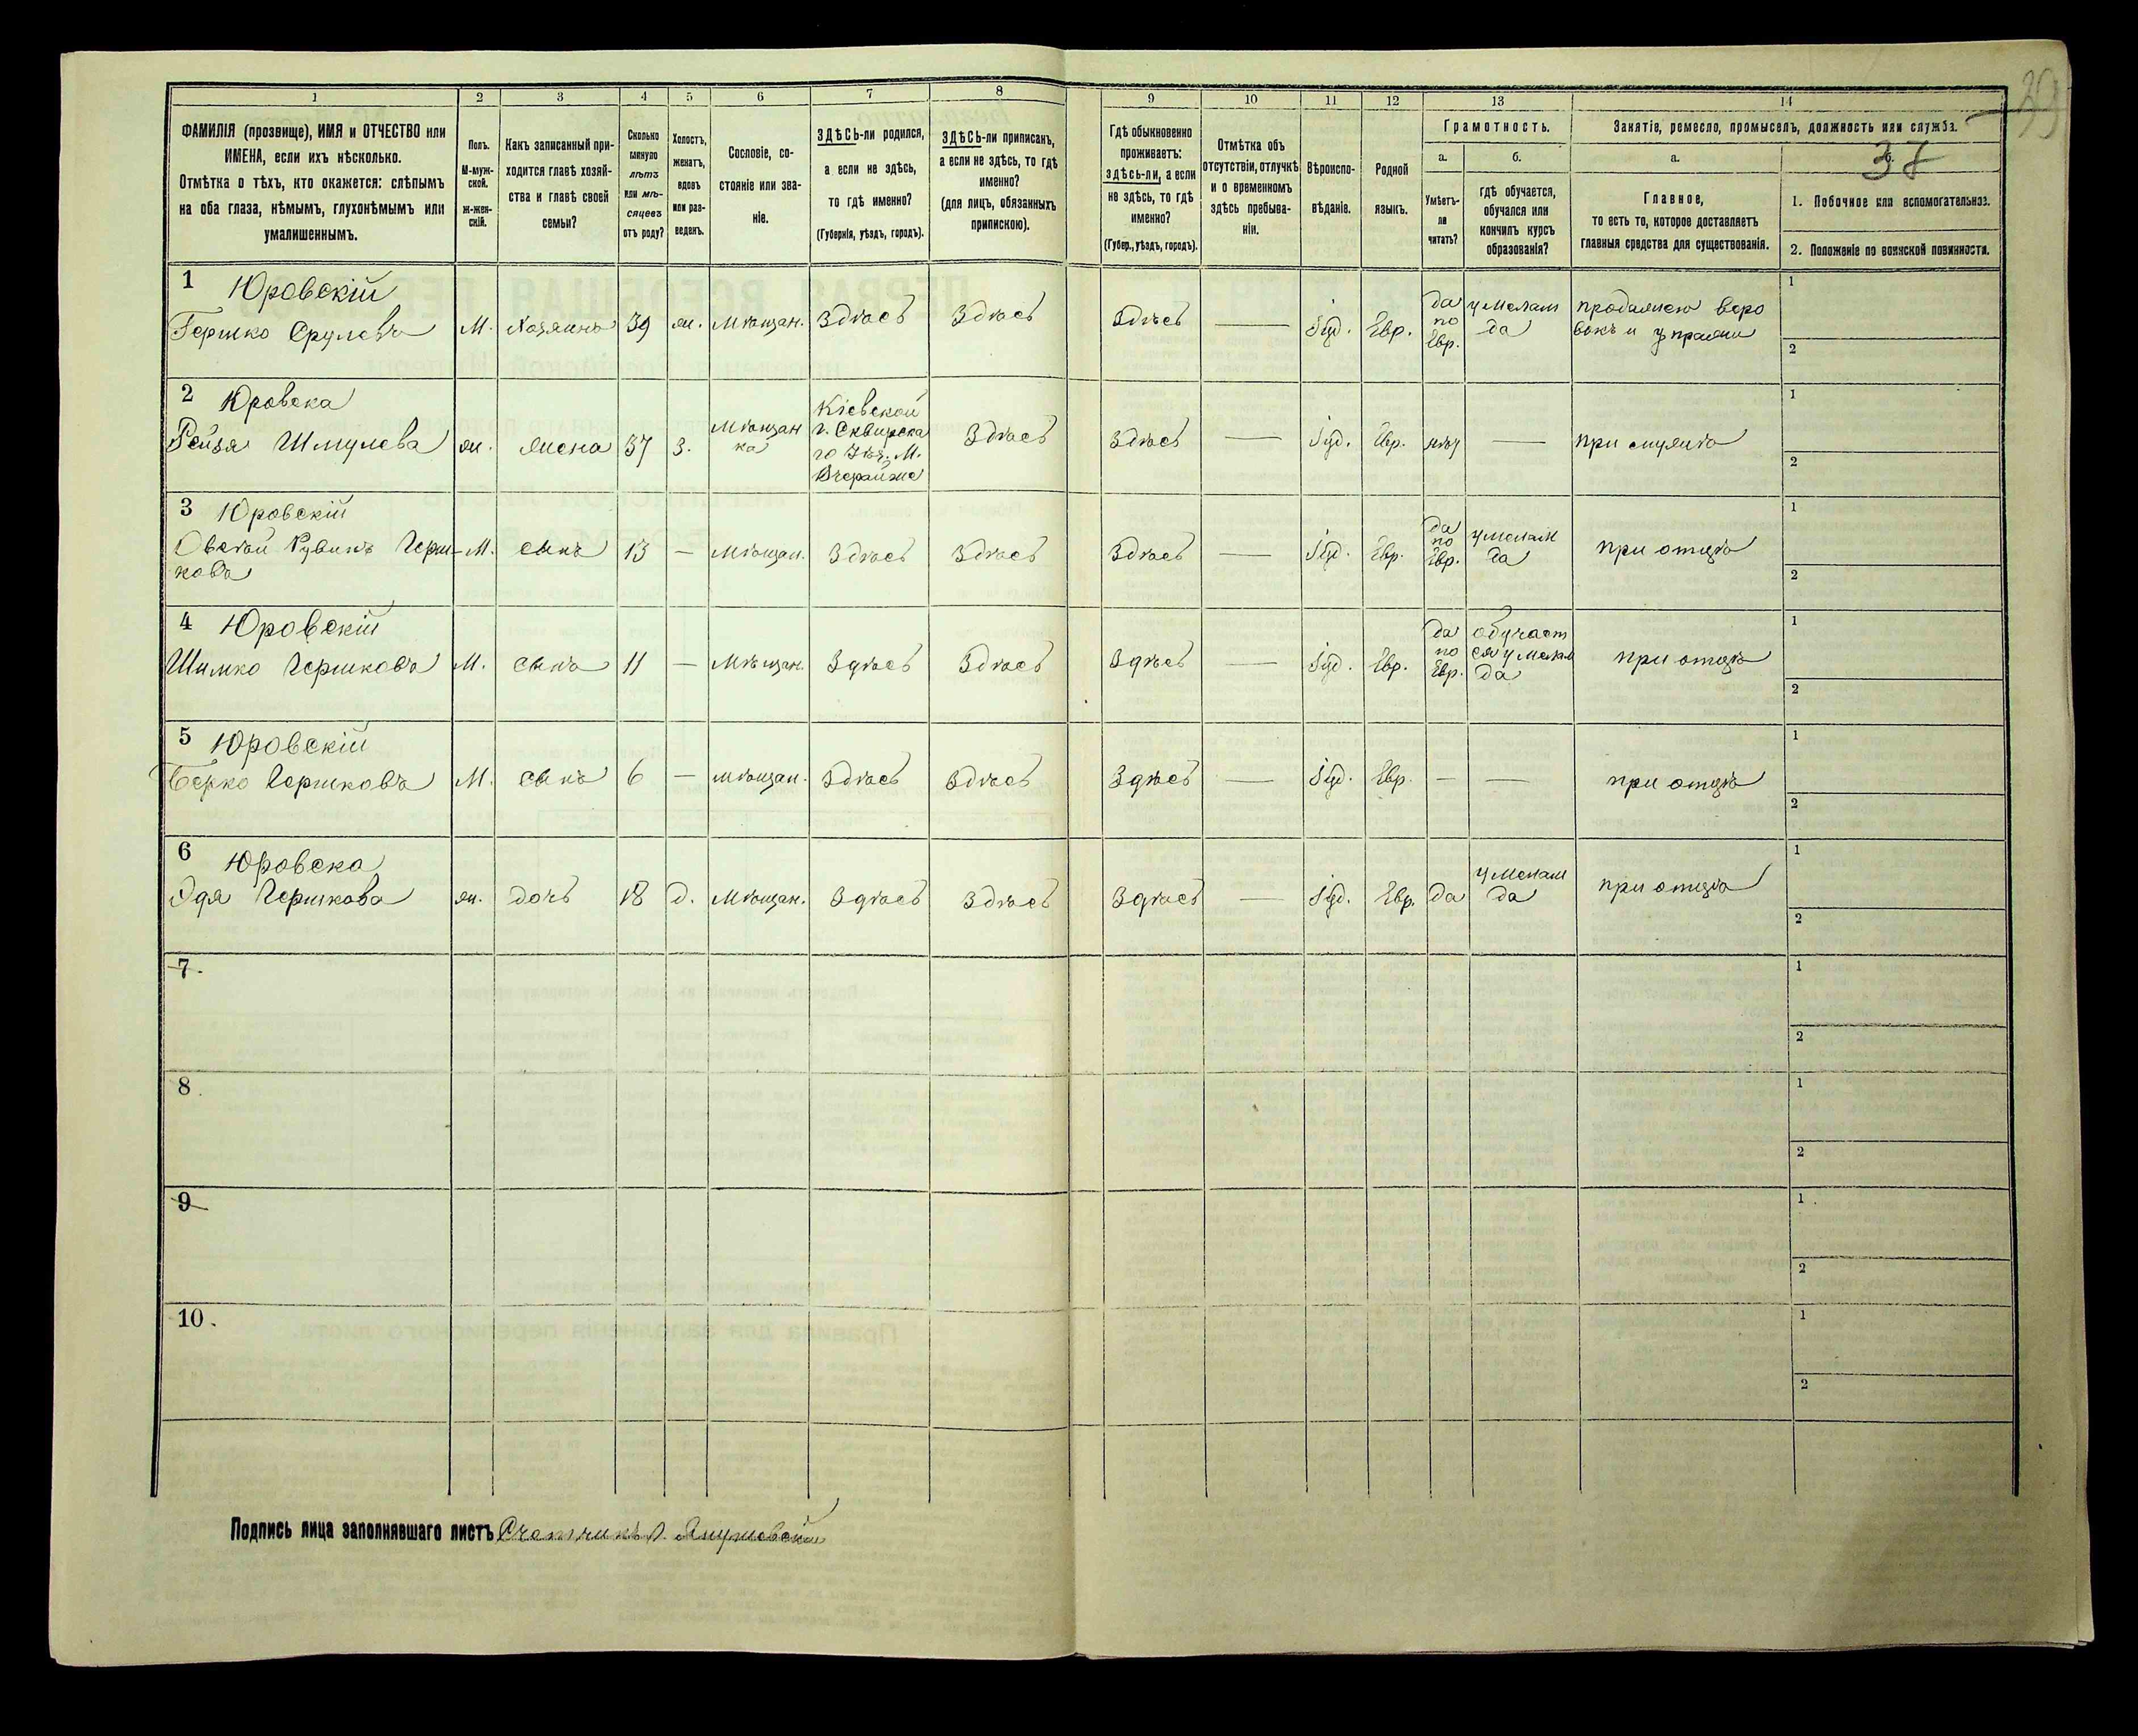 39
37
1
2
3
4
5
6
7
8
9
10
11
12
13
14
ФАМИЛІЯ (прозвище), ИМЯ и ОТЧЕСТВО или
ИМЕНА, если ихъ нѣсколько.
Отмѣтка о тѣхъ, кто окажется: слѣпымъ
на оба глаза, нѣмымъ, глухонѣмымъ или
умалишеннымъ.
Полъ.
М-муж-
ской.
ж-жен-
скій.
Какъ записанный при-
ходится главѣ хозяй-
ства и главѣ своей
семьи?
Сколько
минуло
лѣтъ
или мѣ-
сяцевъ
отъ роду?
Холостъ,
женатъ,
вдовъ
или раз-
веденъ.
Сословіе, со-
стояніе или зва-
ніе.
ЗДѢСЬ-ли родился,
а если не здѣсь,
то гдѣ именно?
(Губернія, уѣздъ, городъ).
ЗДѢСЬ-ли приписанъ,
а если не здѣсь, то гдѣ
именно?
(для лицъ, обязанныхъ
припискою).
Гдѣ обыкновенно
проживаетъ:
здѣсь-ли, а если
не здѣсь, то гдѣ
именно?
(Губер., уѣздъ, городъ).
Отмѣтка объ
отсутствіи, отлучкѣ
и о временномъ
здѣсь пребыва-
ніи.
Вѣроиспо-
вѣданіе.
Родной
языкъ.
Грамотность.
а.
Умѣетъ-
ли
читать?
б.
гдѣ обучается,
обучался или
кончилъ курсъ
образованія?
Занятіе, ремесло, промыселъ, должность или служба.
а.
Главное,
то есть то, которое доставляетъ
главныя средства для существованія.
1. Побочное или вспомогательное.
2. Положеніе по воинской повинности.
1 Юровскій
Гершко Срулевъ М. хозяинъ 39 ж. Мѣщан. Здѣсь Здѣсь Здѣсь — Іуд. Евр. да по Евр. у Мелам да продажею веро вокъ и упряжи 1 2
2 Юровска
Рейзя Шмулева ж. жена 37 З. Мѣщан ка Кіевской г. Сквирска го Уѣз. М. Вчерайше Здѣсь Здѣсь — Іуд. Евр. нѣт — при мужѣ 1 2
3 Юровскій
Овсѣй Рувинъ Герш- М. сынъ 13 — Мѣщан. Здѣсь Здѣсь Здѣсь — Іуд. Евр. да по Евр. у Мелам да при отцѣ 1 2
ковъ
4 Юровскій
Шимко Гершковъ М. сынъ 11 — Мѣщан. Здѣсь Здѣсь Здѣсь — Іуд. Евр. да по Евр. обучает ся у Мелам да при отцѣ 1 2
5 Юровскій
Берко Гершковъ М. сынъ 6 — мѣщан. Здѣсь Здѣсь Здѣсь — Іуд. Евр. — — при отцѣ 1 2
6 Юровска
Эдя Гершкова ж. дочь 18 д. Мѣщан. Здѣсь Здѣсь Здѣсь — Іуд. Евр. да у Мелам да при отцѣ 1 2
7 1 2
8 1 2
9 1 2
10 1 2
Подпись лица заполнявшаго листъ Счетчикъ